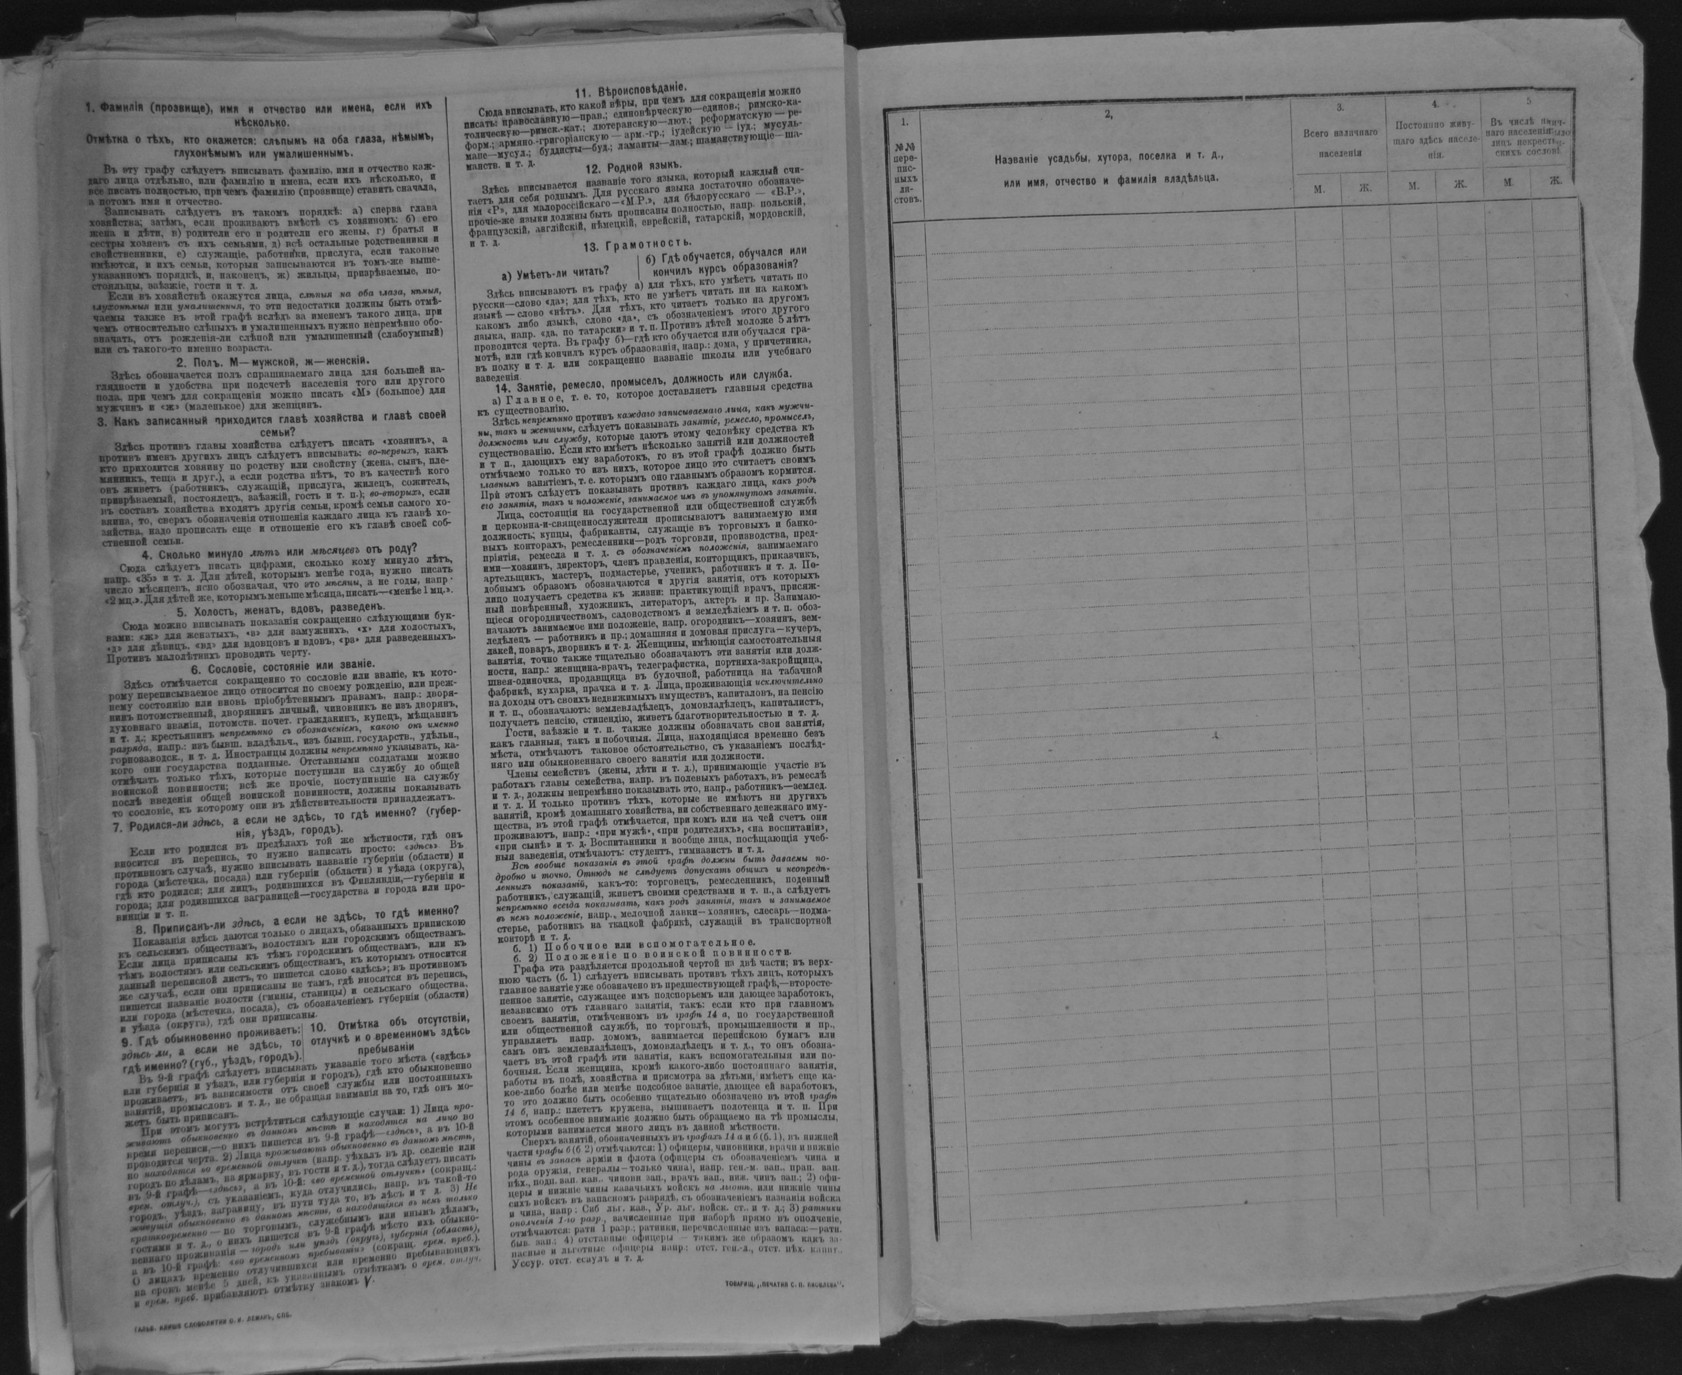 1. Фамилія (прозвище), имя и отчество или имена, если ихъ
нѣсколько.
Отмѣтка о тѣхъ, кто окажется: слѣпымъ на оба глаза, нѣмымъ,
глухонѣмымъ или умалишеннымъ.
Въ эту графу слѣдуетъ вписывать фамилію, имя и отчество каж-
даго лица отдѣльно, или фамилію и имена, если ихъ нѣсколько, и
все писать полностью, при чемъ фамилію (прозвище) ставить сначала,
а потомъ имя и отчество.
Записывать слѣдуетъ въ такомъ порядкѣ: а) сперва глава
хозяйства; затѣмъ, если проживаютъ вмѣстѣ съ хозяиномъ: б) его
жена и дѣти, в) родители его и родители его жены, г) братья и
сестры хозяевъ съ ихъ семьями, д) всѣ остальные родственники и
свойственники, е) служащіе, работники, прислуга, если таковые
имѣются, и ихъ семьи, которыя записываются въ томъ-же выше-
указанномъ порядкѣ, и, наконецъ, ж) жильцы, призрѣваемые, по-
стояльцы, заѣзжіе, гости и т. д.
Если въ хозяйствѣ окажутся лица, слѣпыя на оба глаза, нѣмыя,
глухонѣмыя или умалишенныя, то эти недостатки должны быть отмѣ-
чаемы также въ этой графѣ вслѣдъ за именемъ такого лица, при
чемъ относительно слѣпыхъ и умалишенныхъ нужно непремѣнно обо-
значать, отъ рожденія-ли слѣпой или умалишенный (слабоумный)
или съ такого-то именно возраста.
2. Полъ. М—мужской, ж—женскій.
Здѣсь обозначается полъ спрашиваемаго лица для большей на-
глядности и удобства при подсчетѣ населенія того или другого
пола, при чемъ для сокращенія можно писать «М» (большое) для
мужчинъ и «ж» (маленькое) для женщинъ.
3. Какъ записанный приходится главѣ хозяйства и главѣ своей
семьи?
Здѣсь противъ главы хозяйства слѣдуетъ писать «хозяинъ», а
противъ именъ другихъ лицъ слѣдуетъ вписывать: во-первыхъ, какъ
кто приходится хозяину по родству или свойству (жена, сынъ, пле-
мянникъ, теща и друг.), а если родства нѣтъ, то въ качествѣ кого
онъ живетъ (работникъ, служащій, прислуга, жилецъ, сожитель,
призрѣваемый, постоялецъ, заѣзжій, гость и т. п.); во-вторыхъ, если
въ составъ хозяйства входятъ другія семьи, кромѣ семьи самого хо-
зяина, то, сверхъ обозначенія отношенія каждаго лица къ главѣ хо-
зяйства, надо прописать еще и отношеніе его къ главѣ своей соб-
ственной семьи.
4. Сколько минуло лѣтъ или мѣсяцевъ отъ роду?
Сюда слѣдуетъ писать цифрами, сколько кому минуло лѣтъ,
напр. «35» и т. д. Для дѣтей, которымъ менѣе года, нужно писать
число мѣсяцевъ, ясно обозначая, что это мѣсяцы, а не годы, напр.
«2 мц.». Для дѣтей же, которымъ меньше мѣсяца, писать—«менѣе 1 мц.».
5. Холостъ, женатъ, вдовъ, разведенъ.
Сюда можно вписывать показанія сокращенно слѣдующими бук-
вами: «ж» для женатыхъ, «з» для замужнихъ, «х» для холостыхъ,
«д» для дѣвицъ, «вд» для вдовцовъ и вдовъ, «ра» для разведенныхъ.
Противъ малолѣтнихъ проводить черту.
6. Сословіе, состояніе или званіе.
Здѣсь отмѣчается сокращенно то сословіе или званіе, къ кото-
рому переписываемое лицо относится по своему рожденію, или преж-
нему состоянію или вновь пріобрѣтеннымъ правамъ, напр.: дворя-
нинъ потомственный, дворянинъ личный, чиновникъ не изъ дворянъ,
духовнаго званія, потомств. почет. гражданинъ, купецъ, мѣщанинъ
и т. д.; крестьянинъ непремѣнно съ обозначеніемъ, какого онъ именно
разряда, напр.: изъ бывш. владѣльч., изъ бывш. государств., удѣльн.,
горнозаводск., и т. д. Иностранцы должны непремѣнно указывать, ка-
кого они государства подданные. Отставными солдатами можно
отмѣчать только тѣхъ, которые поступили на службу до общей
воинской повинности; всѣ же прочіе, поступившіе на службу
послѣ введенія общей воинской повинности, должны показывать
то сословіе, къ которому они въ дѣйствительности принадлежатъ.
7. Родился-ли здѣсь, а если не здѣсь, то гдѣ именно? (губер-
нія, уѣздъ, городъ).
Если кто родился въ предѣлахъ той же мѣстности, гдѣ онъ
вносится въ перепись, то нужно написать просто: «здѣсь» Въ
противномъ случаѣ, нужно вписывать названіе губерніи (области) и
города (мѣстечка, посада) или губерніи (области) и уѣзда (округа),
гдѣ кто родился; для лицъ, родившихся въ Финляндіи,—губерніи и
города; для родившихся заграницей—государства и города или про-
винціи и т. п.
8. Приписанъ-ли здѣсь, а если не здѣсь, то гдѣ именно?
Показанія здѣсь даются только о лицахъ, обязанныхъ припискою
къ сельскимъ обществамъ, волостямъ или городскимъ обществамъ.
Если лица приписаны къ тѣмъ городскимъ обществамъ, или къ
тѣмъ волостямъ или сельскимъ обществамъ, къ которымъ относится
данный переписной листъ, то пишется слово «здѣсь»; въ противномъ
же случаѣ, если они приписаны не тамъ, гдѣ вносятся въ перепись,
пишется названіе волости (гмины, станицы) и сельскаго общества,
или города (мѣстечка, посада), съ обозначеніемъ губерніи (области)
и уѣзда (округа), гдѣ они приписаны.
9. Гдѣ обыкновенно проживаетъ:
здѣсь ли, а если не здѣсь, то
гдѣ именно? (губ., уѣздъ, городъ).
10. Отмѣтка объ отсутствіи,
отлучкѣ и о временномъ здѣсь
пребываніи
Въ 9-й графѣ слѣдуетъ вписывать указаніе того мѣста («здѣсь»
или губернія и уѣздъ, или губернія и городъ), гдѣ кто обыкновенно
проживаетъ, въ зависимости отъ своей службы или постоянныхъ
занятій, промысловъ и т. д., не обращая вниманія на то, гдѣ онъ мо-
жетъ быть приписанъ.
При этомъ могутъ встрѣтиться слѣдующіе случаи: 1) Лица про-
живаютъ обыкновенно въ данномъ мѣстѣ и находятся на лицо во
время переписи,—о нихъ пишется въ 9-й графѣ—«здѣсь», а въ 10-й
проводится черта. 2) Лица проживаютъ обыкновенно въ данномъ мѣстѣ,
но находятся во временной отлучкѣ (напр. уѣхалъ въ др. селеніе или
городъ по дѣламъ, на ярмарку, въ гости и т. д.), тогда слѣдуетъ писать
въ 9-й графѣ—«здѣсь», а въ 10-й: «во временной отлучкѣ» (сокращ.:
врем. отлуч.), съ указаніемъ, куда отлучились, напр. въ такой-то
городъ, уѣздъ, заграницу, въ пути туда то, въ лѣсъ и т д. 3) Не
живущія обыкновенно въ данномъ мѣстѣ, а находящіяся въ немъ только
кратковременно — по торговымъ, служебнымъ или инымъ дѣламъ,
гостями и т. д., о нихъ пишется въ 9-й графѣ мѣсто ихъ обыкно-
веннаго проживанія — городъ или уѣздъ (округъ), губернія (область),
а въ 10-й графѣ: «во временномъ пребываніи» (сокращ. врем. преб.).
О лицахъ временно отлучившихся или временно пребывающихъ
на срокъ менѣе 5 дней, къ указаннымъ отмѣткамъ о врем. отлуч.
и врем. преб. прибавляютъ отмѣтку знакомъ V.
11. Вѣроисповѣданіе.
Сюда вписывать, кто какой вѣры, при чемъ для сокращенія можно
писать: православную—прав.; единовѣрческую—единов.; римско-ка-
толическую—римск.-кат.; лютеранскую—лют.; реформатскую — ре-
форм.; армяно-григоріанскую — арм.-гр.; іудейскую — іуд.; мусуль-
мане—мусул.; буддисты—буд.; ламаиты—лам.; шаманствующіе—ша-
манств. и т. д.
12. Родной языкъ.
Здѣсь вписывается названіе того языка, который каждый счи-
таетъ для себя роднымъ. Для русскаго языка достаточно обозначе-
нія «Р», для малороссійскаго—«М.Р.», для бѣлорусскаго — «Б.Р.»,
прочіе-же языки должны быть прописаны полностью, напр. польскій,
французскій, англійскій, нѣмецкій, еврейскій, татарскій, мордовскій,
и т. д.
13. Грамотность.
а) Умѣетъ-ли читать?
б) Гдѣ обучается, обучался или
кончилъ курсъ образованія?
Здѣсь вписываютъ въ графу а) для тѣхъ, кто умѣетъ читать по
русски—слово «да»; для тѣхъ, кто не умѣетъ читать ни на какомъ
языкѣ — слово «нѣтъ». Для тѣхъ, кто читаетъ только на другомъ
какомъ либо языкѣ, слово «да», съ обозначеніемъ этого другого
языка, напр. «да, по татарски» и т. п. Противъ дѣтей моложе 5 лѣтъ
проводится черта. Въ графу б)—гдѣ кто обучается или обучался гра-
мотѣ, или гдѣ кончилъ курсъ образованія, напр.: дома, у причетника,
въ полку и т. д. или сокращенно названіе школы или учебнаго
заведенія.
14. Занятіе, ремесло, промыселъ, должность или служба.
а) Главное, т. е. то, которое доставляетъ главныя средства
къ существованію.
Здѣсь непремѣнно противъ каждаго записываемаго лица, какъ мужчи-
ны, такъ и женщины, слѣдуетъ показывать занятіе, ремесло, промыселъ,
должность или службу, которые даютъ этому человѣку средства къ
существованію. Если кто имѣетъ нѣсколько занятій или должностей
и т п., дающихъ ему заработокъ, то въ этой графѣ должно быть
отмѣчаемо только то изъ нихъ, которое лицо это считаетъ своимъ
главнымъ занятіемъ, т. е. которымъ оно главнымъ образомъ кормится.
При этомъ слѣдуетъ показывать противъ каждаго лица, какъ родъ
его занятія, такъ и положеніе, занимаемое имъ въ упомянутомъ занятіи.
Лица, состоящія на государственной или общественной службѣ
и церковно-и-священнослужители прописываютъ занимаемую ими
должность; купцы, фабриканты, служащіе въ торговыхъ и банко-
выхъ конторахъ, ремесленники—родъ торговли, производства, пред-
пріятія, ремесла и т. д. съ обозначеніемъ положенія, занимаемаго
ими—хозяинъ, директоръ, членъ правленія, конторщикъ, приказчикъ,
артельщикъ, мастеръ, подмастерье, ученикъ, работникъ и т. д. По-
добнымъ образомъ обозначаются и другія занятія, отъ которыхъ
лицо получаетъ средства къ жизни: практикующій врачъ, присяж-
ный повѣренный, художникъ, литераторъ, актеръ и пр. Занимаю-
щіеся огородничествомъ, садоводствомъ и земледѣліемъ и т. п. обоз-
начаютъ занимаемое ими положеніе, напр. огородникъ—хозяинъ, зем-
ледѣлецъ — работникъ и пр.; домашняя и домовая прислуга—кучеръ,
лакей, поваръ, дворникъ и т. д. Женщины, имѣющія самостоятельныя
занятія, точно также тщательно обозначаютъ эти занятія или долж-
ности, напр.: женщина-врачъ, телеграфистка, портниха-закройщица,
швея-одиночка, продавщица въ булочной, работница на табачной
фабрикѣ, кухарка, прачка и т. д. Лица, проживающія исключительно
на доходы отъ своихъ недвижимыхъ имуществъ, капиталовъ, на пенсію
и т. п., обозначаютъ: землевладѣлецъ, домовладѣлецъ, капиталистъ,
получаетъ пенсію, стипендію, живетъ благотворительностью и т. д.
Гости, заѣзжіе и т. п. также должны обозначать свои занятія,
какъ главныя, такъ и побочныя. Лица, находящіяся временно безъ
мѣста, отмѣчаютъ таковое обстоятельство, съ указаніемъ послѣд-
няго или обыкновеннаго своего занятія или должности.
Члены семействъ (жены, дѣти и т. д.), принимающіе участіе въ
работахъ главы семейства, напр. въ полевыхъ работахъ, въ ремеслѣ
и т. д., должны непремѣнно показывать это, напр., работникъ—землед.
и т. д. И только противъ тѣхъ, которые не имѣютъ ни другихъ
занятій, кромѣ домашняго хозяйства, ни собственнаго денежнаго иму-
щества, въ этой графѣ отмѣчается, при комъ или на чей счетъ они
проживаютъ, напр.: «при мужѣ», «при родителяхъ», «на воспитаніи»,
«при сынѣ» и т. д. Воспитанники и вообще лица, посѣщающія учеб-
ныя заведенія, отмѣчаютъ: студентъ, гимназистъ и т. д.
Всѣ вообще показанія въ этой графѣ должны быть даваемы по-
дробно и точно. Отнюдь не слѣдуетъ допускать общихъ и неопредѣ-
ленныхъ показаній, какъ-то: торговецъ, ремесленникъ, поденный
работникъ, служащій, живетъ своими средствами и т. п., а слѣдуетъ
непремѣнно всегда показывать, какъ родъ занятія, такъ и занимаемое
въ немъ положеніе, напр., мелочной лавки—хозяинъ, слесарь—подма-
стерье, работникъ на ткацкой фабрикѣ, служащій въ транспортной
конторѣ и т. д.
б. 1) Побочное или вспомогательное.
б. 2) Положеніе по воинской повинности.
Графа эта раздѣляется продольной чертой на двѣ части; въ верх-
нюю часть (б. 1) слѣдуетъ вписывать противъ тѣхъ лицъ, которыхъ
главное занятіе уже обозначено въ предшествующей графѣ,—второсте-
пенное занятіе, служащее имъ подспорьемъ или дающее заработокъ,
независимо отъ главнаго занятія, такъ: если кто при главномъ
своемъ занятіи, отмѣченномъ въ графѣ 14 а, по государственной
или общественной службѣ, по торговлѣ, промышленности и пр.,
управляетъ напр. домомъ, занимается перепискою бумагъ или
самъ онъ землевладѣлецъ, домовладѣлецъ и т. д., то онъ обозна-
чаетъ въ этой графѣ эти занятія, какъ вспомогательныя или по-
бочныя. Если женщина, кромѣ какого-либо постояннаго занятія,
работы въ полѣ, хозяйства и присмотра за дѣтьми, имѣетъ еще ка-
кое-либо болѣе или менѣе подсобное занятіе, дающее ей заработокъ,
то это должно быть особенно тщательно обозначено въ этой графѣ
14 б, напр.: плететъ кружева, вышиваетъ полотенца и т. п. При
этомъ особенное вниманіе должно быть обращаемо на тѣ промыслы,
которыми занимается много лицъ въ данной мѣстности.
Сверхъ занятій, обозначенныхъ въ графахъ 14 а и б (б. 1), въ нижней
части графы б (б 2) отмѣчаются: 1) офицеры, чиновники, врачи и нижніе
чины въ запасѣ арміи и флота (офицеры съ обозначеніемъ чина и
рода оружія, генералы—только чина), напр. ген.-м. зап., прап. зап.
пѣх., подп. зап. кав., чиновн зап., врачъ зап., ниж. чинъ зап.; 2) офи-
церы и нижніе чины казачьихъ войскъ на льготѣ, или нижніе чины
сихъ войскъ въ запасномъ разрядѣ, съ обозначеніемъ названія войска
и чина, напр: Сиб льг. каз., Ур. льг. войск. ст. и т. д.; 3) ратники
ополченія 1-го разр., зачисленные при наборѣ прямо въ ополченіе,
отмѣчаются: ратн 1 разр.; ратники, перечисленные изъ запаса:—ратн.
быв. зап.; 4) отставные офицеры — такимъ же образомъ какъ за-
пасные и льготные офицеры напр: отст. ген.-л., отст. пѣх. капит.,
Уссур. отст. есаулъ и т. д.
ТОВАРИЩ. „ПЕЧАТНЯ С. П. ЯКОВЛЕВА“.
1.
№№
пере-
пис-
ныхъ
ли-
стовъ.
2,
Названіе усадьбы, хутора, поселка и т. д.,
или имя, отчество и фамилія владѣльца.
3.
Всего наличнаго
населенія
М. Ж.
4.
Постоянно живу-
щаго здѣсь населе-
нія.
М. Ж.
5
Въ числѣ налич-
наго населенія
лицъ некресть-
скихъ сословій
М. Ж.